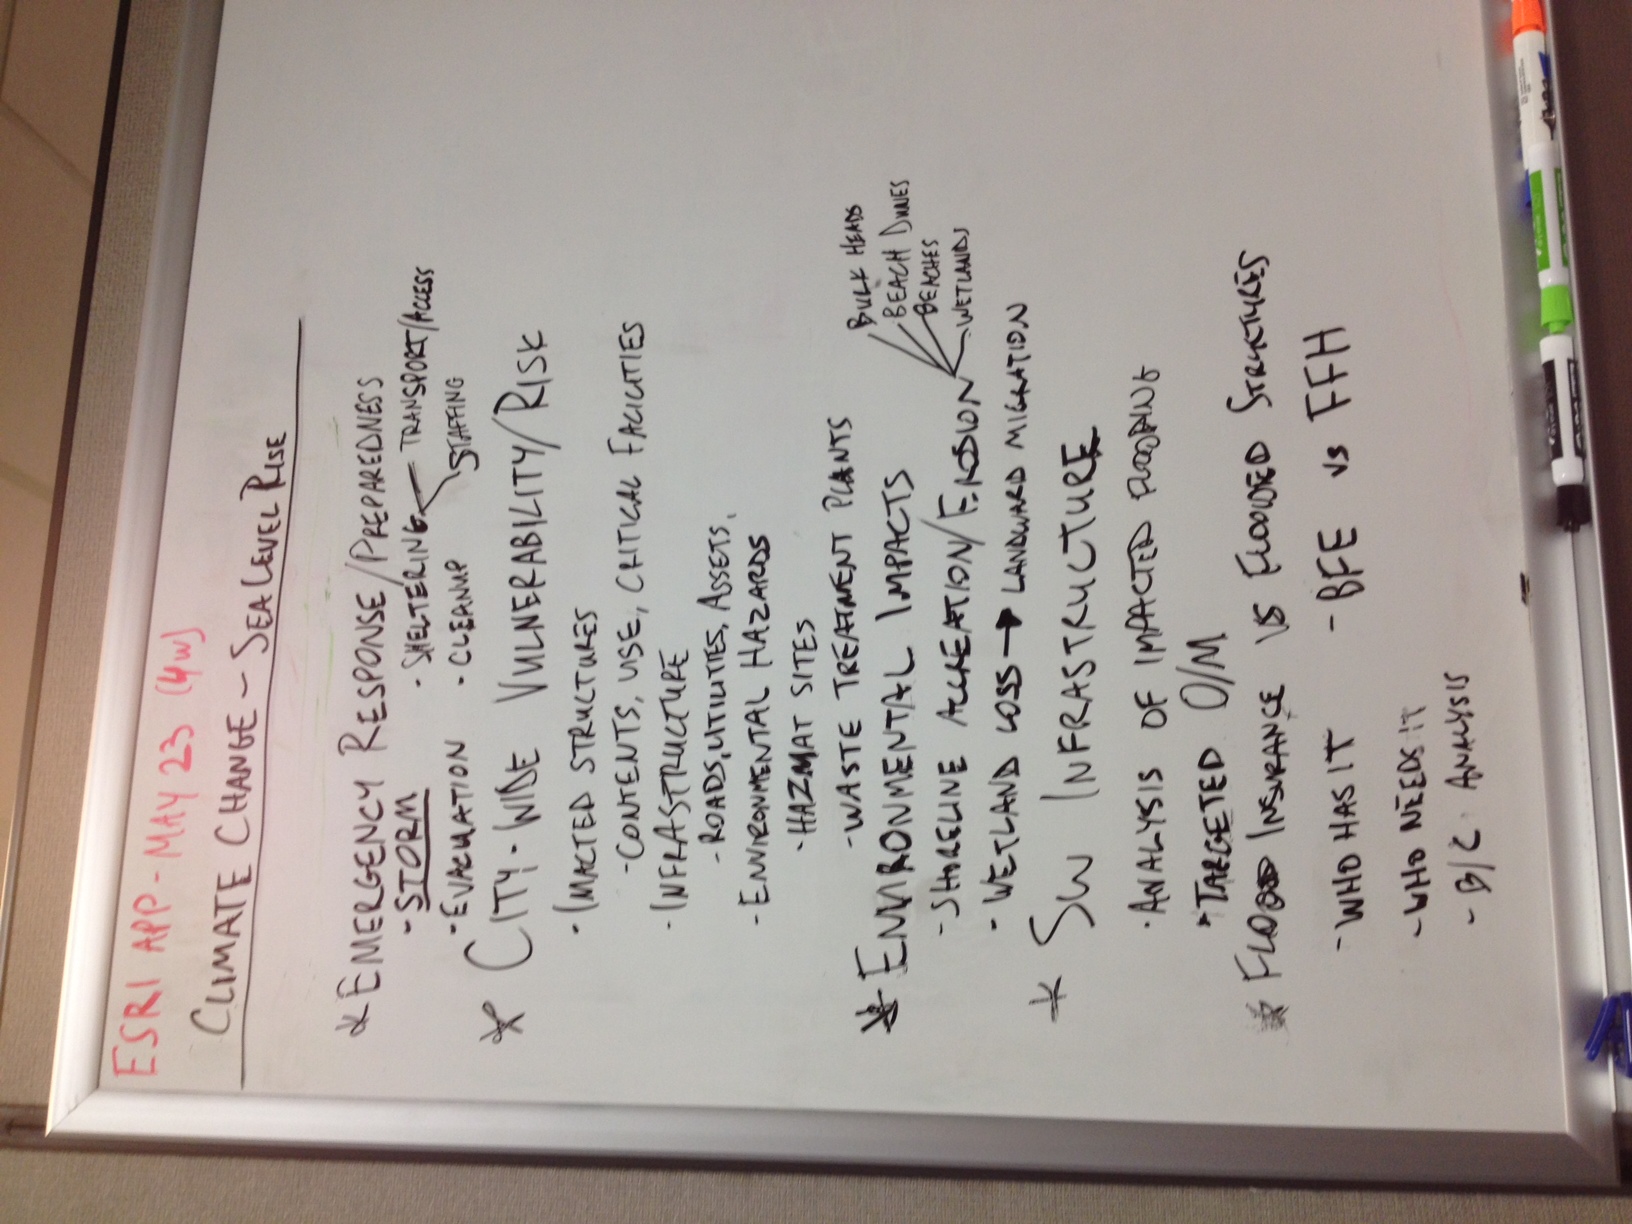 ESRI APP - MAY 23 (4w)
CLIMATE CHANGE - SEA LEVEL RISE
* EMERGENCY RESPONSE/PREPAREDNESS
- STORM - SHELTERING TRANSPORT/ACCESS
- EVACUATION - CLEANUP STAFFING
* CITY-WIDE VULNERABILITY/RISK
- IMACTED STRUCTURES
- CONTENTS, USE, CRITICAL FACILITIES
- INFRASTRUCTURE
- ROADS, UTILITIES, ASSETS,
- ENVIRONMENTAL HAZARDS
- HAZMAT SITES
- WASTE TREATMENT PLANTS
BULK HEADS
* ENVIRONMENTAL IMPACTS
BEACH DUNES
BEACHES
- SHORELINE ACCREATION/EROSION WETLANDS
- WETLAND LOSS → LANDWARD MIGRATION
* SW INFRASTRUCTURE
- ANALYSIS OF IMPACTED FLOODING
- TARGETED O/M
* FLOOD INSURANCE VS FLOODED STRUCTURES
- WHO HAS IT - BFE vs FFH
- WHO NEEDS IT
- B/C ANALYSIS